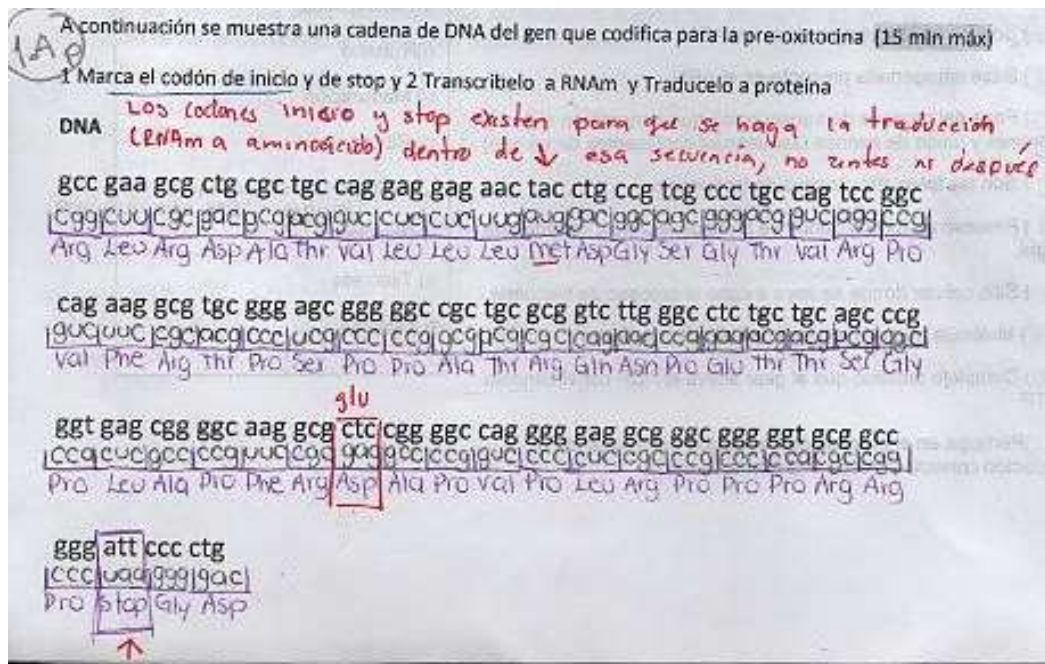 1A
A continuación se muestra una cadena de DNA del gen que codifica para la pre-oxitocina (15 min máx)
1 Marca el codón de inicio y de stop y 2 Transcribelo a RNAm y Traducelo a proteina
Los codones inicio y stop existen para que se haga la traducción
DNA (RNAm a aminoácido) dentro de ↓ esa secuencia, no antes ni después
gcc gaa gcg ctg cgc tgc cag gag gag aac tac ctg ccg tcg ccc tgc cag tcc ggc
cgg|cuu|cgc|gac|gcg|acg|guc|cuc|cuc|uug|aug|gac|ggc|agc|ggg|acg|guc|agg|ccg|
Arg Leu Arg Asp Ala Thr Val Leu Leu Leu Met Asp Gly Ser Gly Thr Val Arg Pro
cag aag gcg tgc ggg agc ggg ggc cgc tgc gcg gtc ttg ggc ctc tgc tgc agc ccg
guc|uuc|cgc|acg|ccc|ucg|ccc|ccg|gcg|acg|cgc|cag|aac|ccg|gag|acg|acg|ucg|ggc|
Val Phe Arg Thr Pro Ser Pro Pro Ala Thr Arg Gln Asn Pro Glu Thr Thr Ser Gly
glu
ggt gag cgg ggc aag gcg ctc cgg ggc cag ggg gag gcg ggc ggg ggt gcg gcc
cca|cuc|gcc|ccg|uuc|cgc|gag|gcc|ccg|guc|ccc|cuc|cgc|ccg|ccc|cca|cgc|cgg|
Pro Leu Ala Pro Phe Arg Asp Ala Pro Val Pro Leu Arg Pro Pro Pro Arg Arg
ggg att ccc ctg
|ccc|uaa|ggg|gac|
Pro Stop Gly Asp
↑